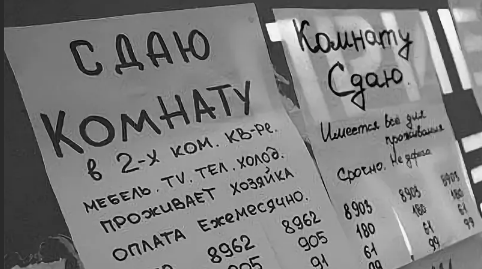 СДАЮ
КОМНАТУ
в 2-х ком. кв-ре.
МЕБЕЛЬ. TV. ТЕЛ. ХОЛОД.
ПРОЖИВАЕТ ХОЗЯЙКА
ОПЛАТА Ежемесячно.
8962 8962
905 905
91
Комнату
Сдаю.
Имеется всё для
проживания
Срочно. Не дорого
8903 8903 8903
180 180 180
61 61 61
99 99 99